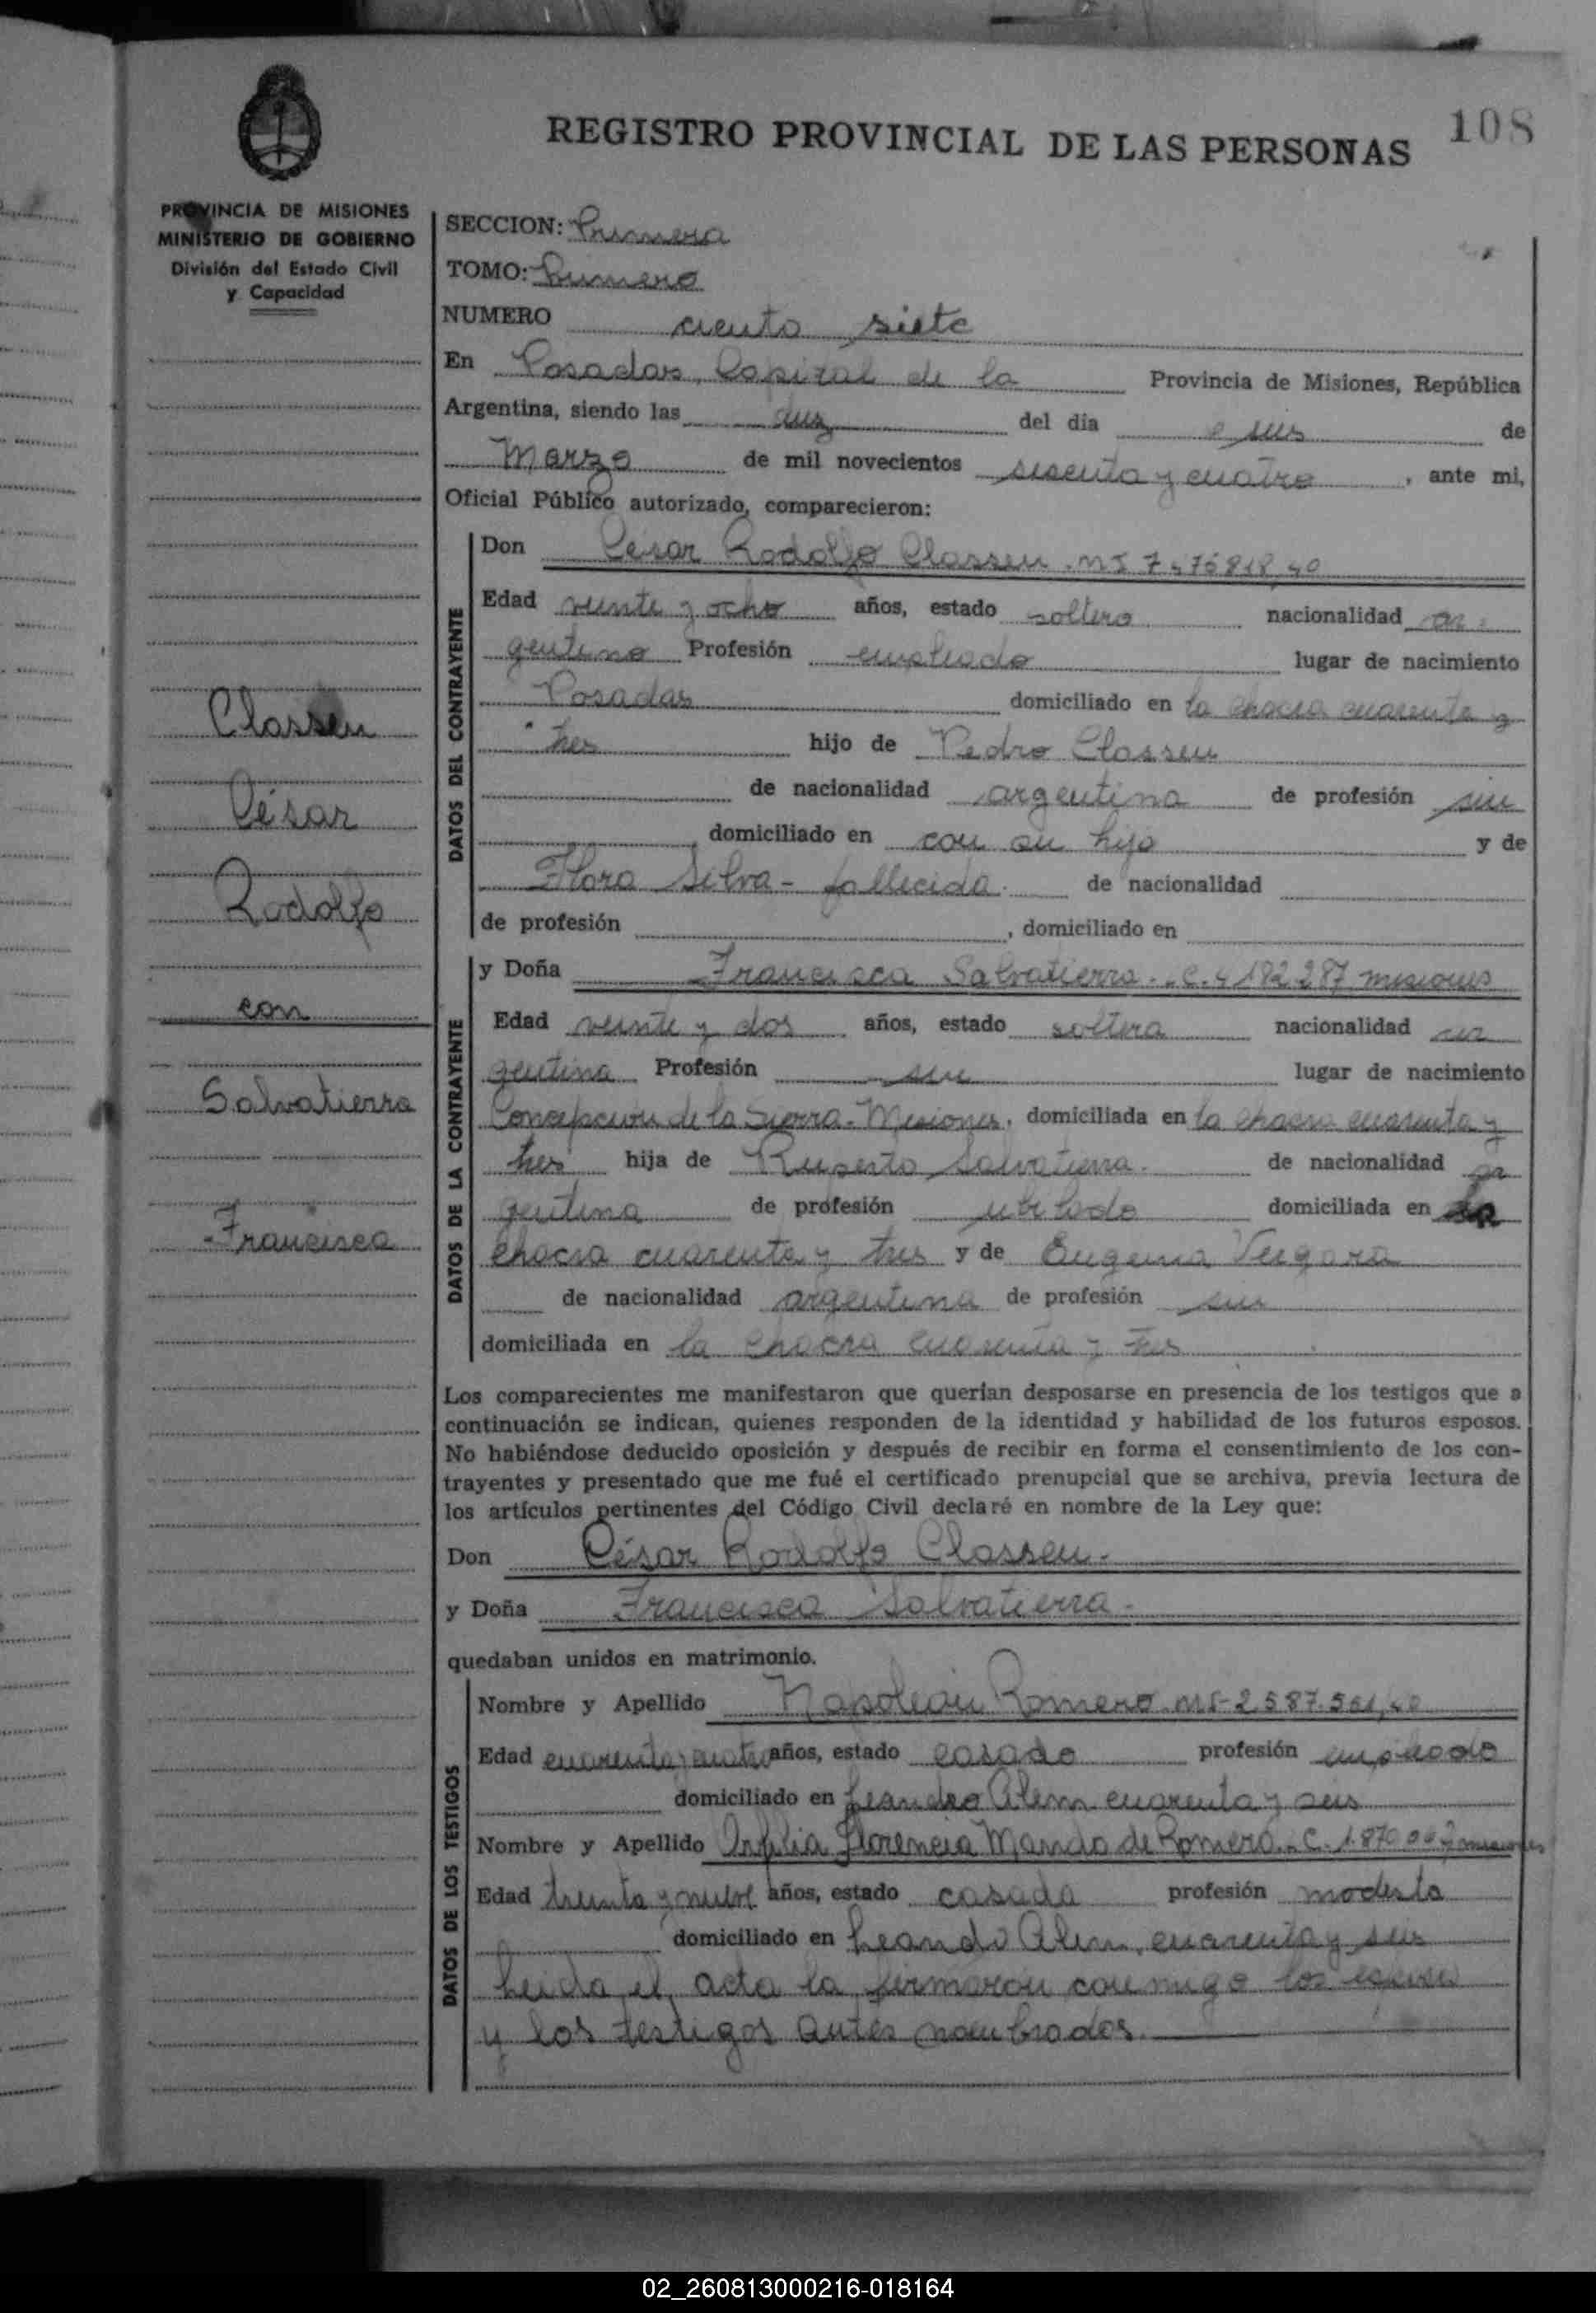 108
REGISTRO PROVINCIAL DE LAS PERSONAS
PROVINCIA DE MISIONES
MINISTERIO DE GOBIERNO
División del Estado Civil
y Capacidad
SECCION: Primera
TOMO: Primero
NUMERO ciento siete
En Posadas, Capital de la Provincia de Misiones, República
Argentina, siendo las diez del día seis de
Marzo de mil novecientos sesenta y cuatro, ante mi,
Oficial Público autorizado, comparecieron:
DATOS DEL CONTRAYENTE
Don Cesar Rodolfo Classen
Edad veinte y ocho años, estado soltero nacionalidad ar
gentino Profesión empleado lugar de nacimiento
Posadas domiciliado en la chacra cuarenta y
tres hijo de Pedro Classen
de nacionalidad argentina de profesión sin
domiciliado en con su hijo y de
Flora Silva - fallecida. de nacionalidad
de profesión , domiciliado en
Classen
César
Rodolfo
con
Salvatierra
Francisca
DATOS DE LA CONTRAYENTE
y Doña Francisca Salvatierra - C. 4182287 misiones
Edad veinte y dos años, estado soltera nacionalidad ar
gentina Profesión sin lugar de nacimiento
Concepcion de la Sierra - Misiones, domiciliada en la chacra cuarenta y
tres hija de Ruperto Salvatierra. de nacionalidad ar
gentina de profesión domiciliada en la
chacra cuarenta y tres y de Eugenia Vergara
de nacionalidad argentina de profesión sin
domiciliada en la chacra cuarenta y tres
Los comparecientes me manifestaron que querían desposarse en presencia de los testigos que a
continuación se indican, quienes responden de la identidad y habilidad de los futuros esposos.
No habiéndose deducido oposición y después de recibir en forma el consentimiento de los con-
trayentes y presentado que me fué el certificado prenupcial que se archiva, previa lectura de
los artículos pertinentes del Código Civil declaré en nombre de la Ley que:
Don César Rodolfo Classen.-
y Doña Francisca Salvatierra.-
quedaban unidos en matrimonio.
DATOS DE LOS TESTIGOS
Nombre y Apellido Napoleón Romero
Edad cuarenta y cuatro años, estado casado profesión empleado
domiciliado en Leandro Alem cuarenta y seis
Nombre y Apellido Florencia Mando de Romero
Edad treinta y nueve años, estado casada profesión modista
domiciliado en Leandro Alem, cuarenta y seis
Leida el acta la firmaron conmigo los esposos
y los testigos antes nombrados.
02_260813000216-018164